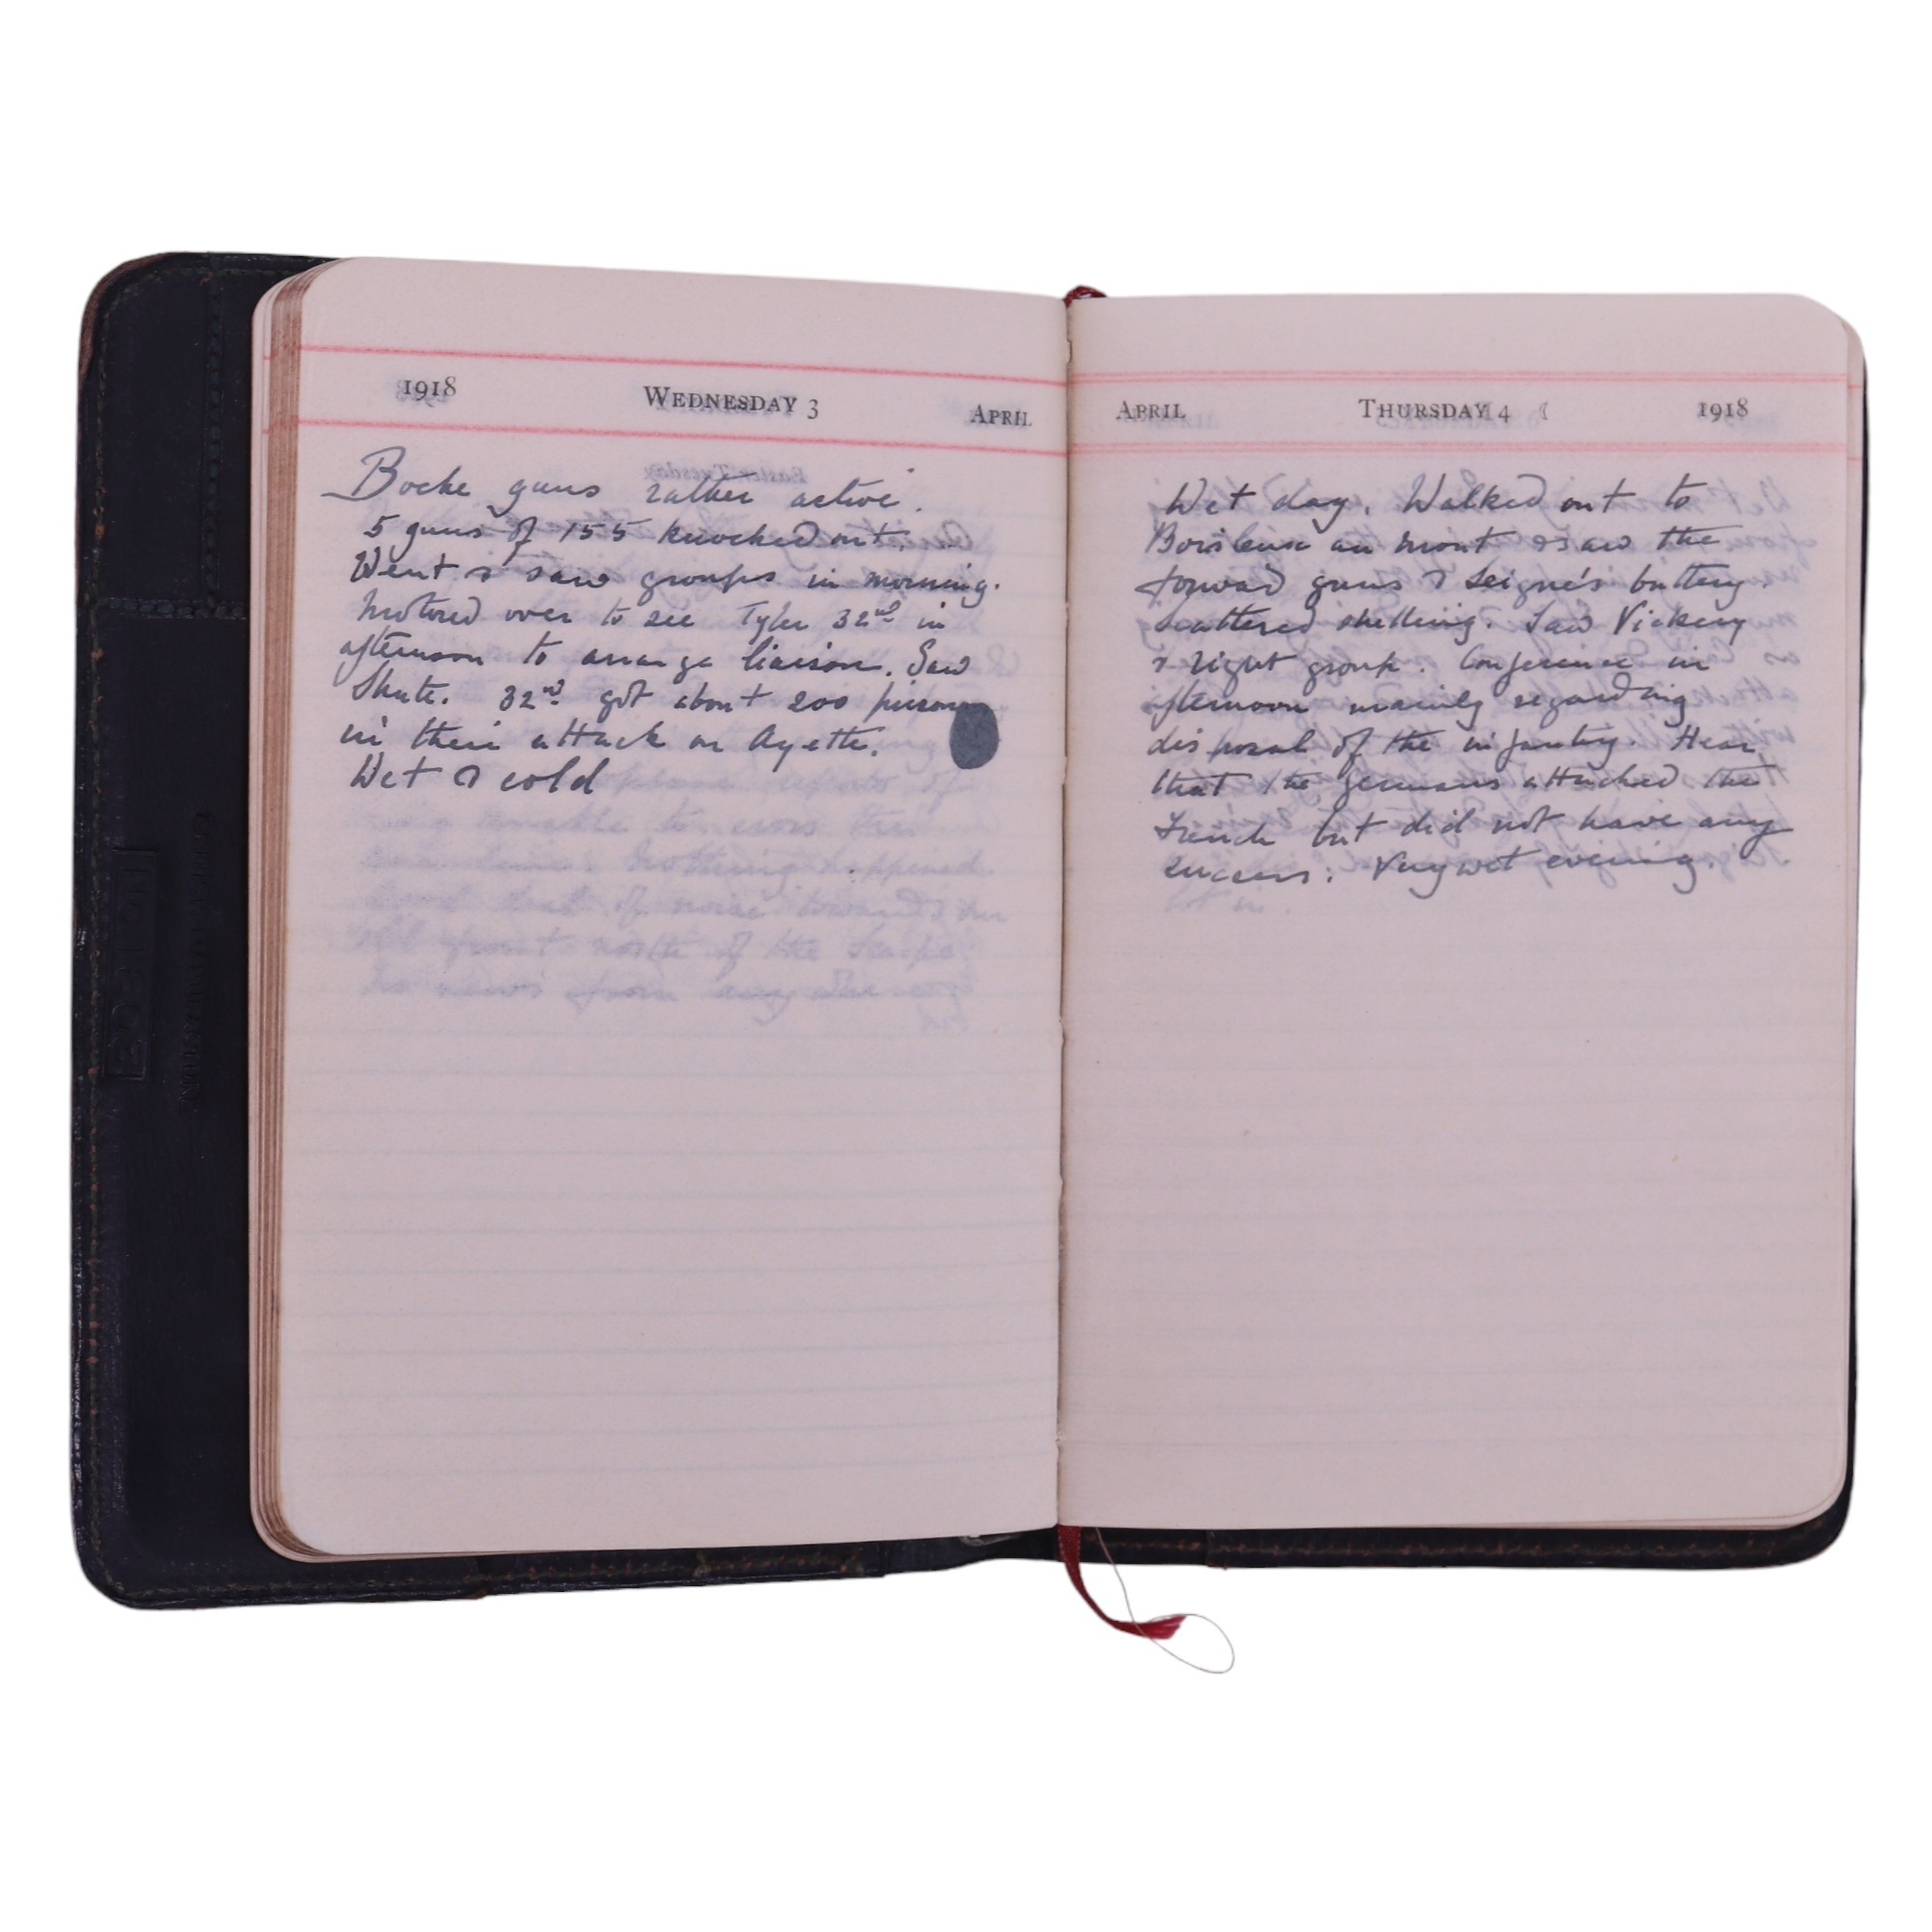 1918 WEDNESDAY 3 APRIL
Boche guns rather active.
5 guns of 155 knocked out.
Went & saw groups in morning.
Motored over to see Tyler 32nd in
afternoon to arrange liaison. Saw
Shute. 32nd got about 200
in their attack on Ayette.
Wet & cold
APRIL THURSDAY 4 1918
Wet day. Walked out to
Boisleux au Mont & saw the
forward guns & Seigne's battery.
Scattered shelling. Saw Vickery
& right group. Conference in
afternoon mainly regarding
disposal of the infantry. Hear
that the germans attacked the
French but did not have any
success. Very wet evening.